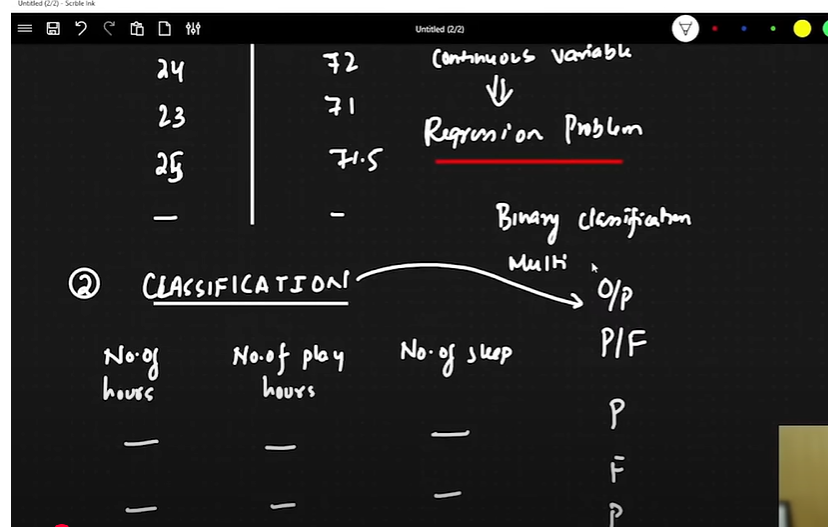 Untitled (2/2) - Scrble Ink
Untitled (2/2)
24 72 Continuous Variable
23 71
Regression Problem
25 71.5
— -
Binary Classification
Multi
② CLASSIFICATION O/P
No. of hours No. of play hours No. of sleep P/F
— — — P
F
— — — P